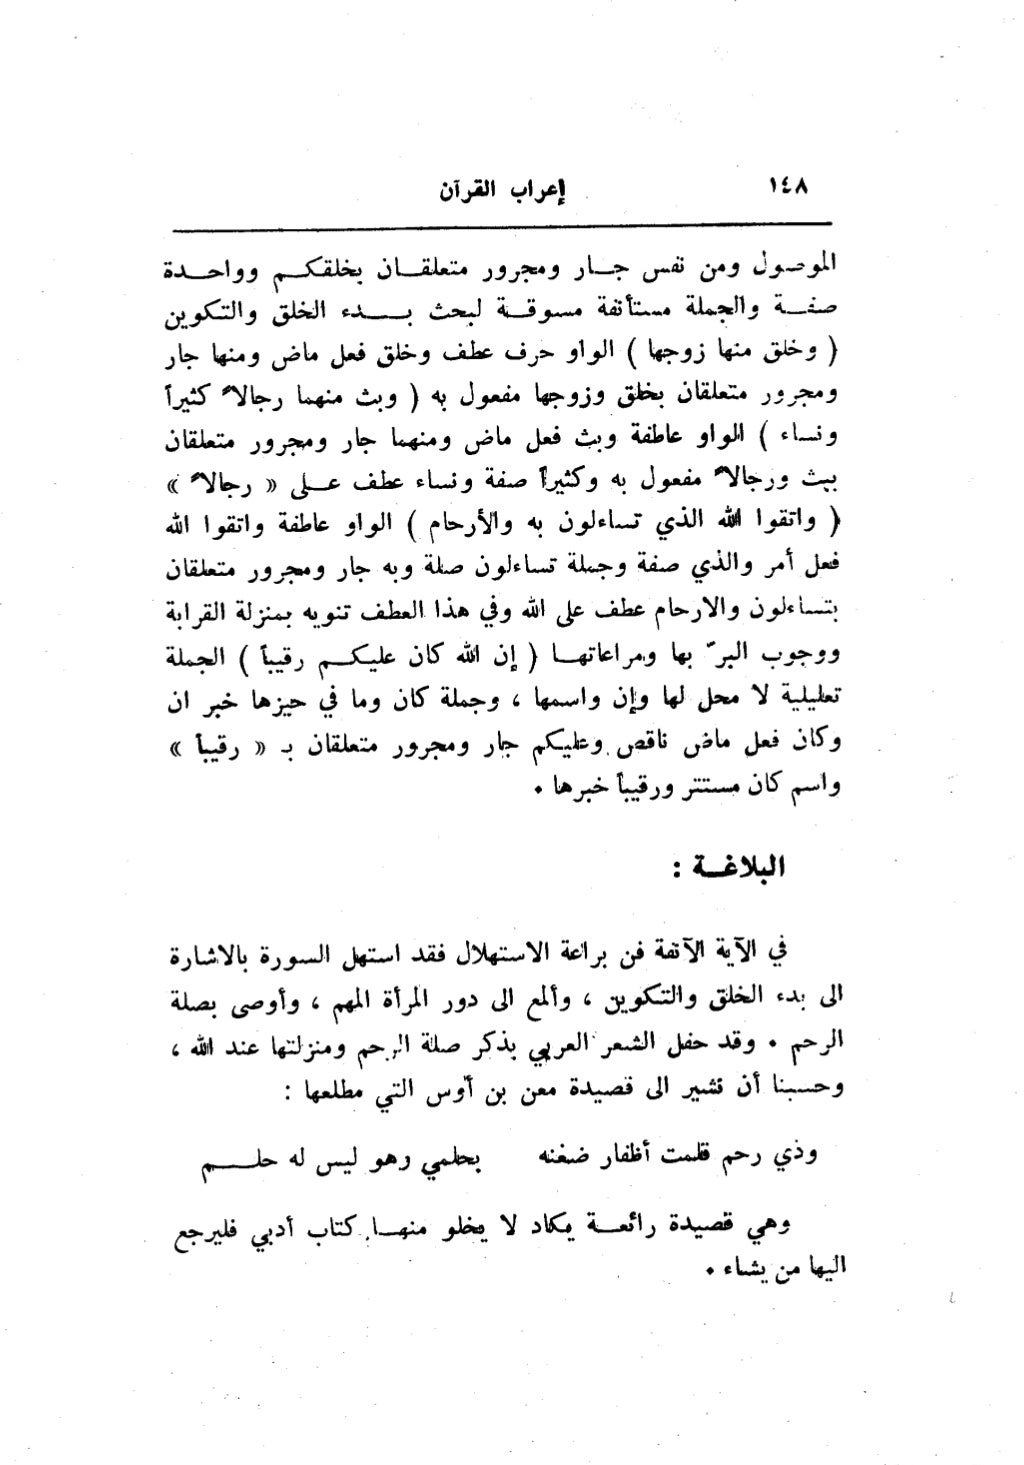 ١٤٨
إعراب القرآن
الموصول ومن نفس جــار ومجرور متعلقــان بخلقكــم وواحــدة
صفــة والجملة مستأنفة مسوقــة لبحث بــدء الخلق والتكوين
( وخلق منها زوجها ) الواو حرف عطف وخلق فعل ماض ومنها جار
ومجرور متعلقان بخلق وزوجها مفعول به ( وبث منهما رجالاً كثيراً
ونساء ) الواو عاطفة وبث فعل ماض ومنهما جار ومجرور متعلقان
ببث ورجالاً مفعول به وكثيراً صفة ونساء عطف عــلى « رجالاً »
( واتقوا الله الذي تساءلون به والأرحام ) الواو عاطفة واتقوا الله
فعل أمر والذي صفة وجملة تساءلون صلة وبه جار ومجرور متعلقان
بتساءلون والارحام عطف على الله وفي هذا العطف تنويه بمنزلة القرابة
ووجوب البرّ بها ومراعاتهــا ( إن الله كان عليكــم رقيباً ) الجملة
تعليلية لا محل لها وإن واسمها ، وجملة كان وما في حيزها خبر ان
وكان فعل ماض ناقص وعليكم جار ومجرور متعلقان بـ « رقيباً »
واسم كان مستتر ورقيباً خبرها .
البلاغــة :
في الآية الآنفة فن براعة الاستهلال فقد استهل السورة بالاشارة
الى بدء الخلق والتكوين ، وألمع الى دور المرأة المهم ، وأوصى بصلة
الرحم . وقد حفل الشعر العربي بذكر صلة الرحم ومنزلتها عند الله ،
وحسبنا أن نشير الى قصيدة معن بن أوس التي مطلعها :
وذي رحم قلمت أظفار ضغنه بحلمي وهو ليس له حلــم
وهي قصيدة رائعــة يكاد لا يخلو منهــا كتاب أدبي فليرجع
اليها من يشاء .